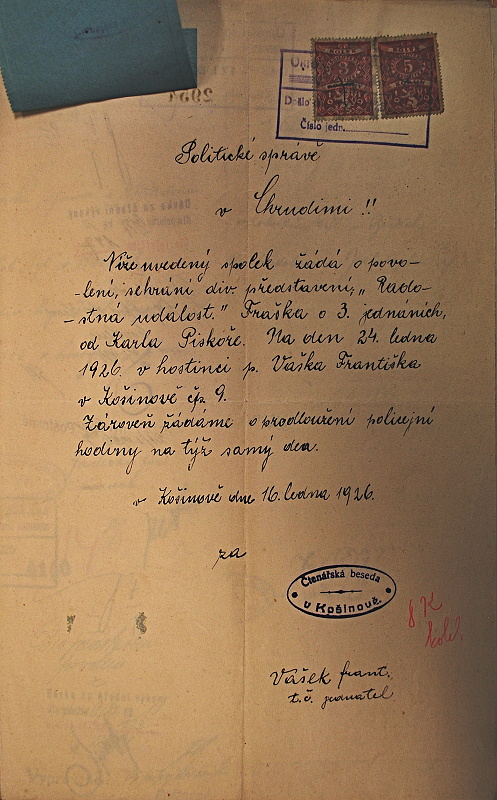 Došlo
Číslo jedn.
3
5
Politické správě
v Chrudimi!!
Níže uvedený spolek žádá o povo-
-lení, sehráni div. představení, „Rado-
-stná událost." Fraška o 3. jednáních,
od Karla Piskoře. Na den 24. ledna
1926. v hostinci p. Vaška Františka
v Košinově čp. 9.
Zároveň žádáme o prodloužení policejní
hodiny na týž samý den.
v Košinově dne 16. ledna 1926.
za
Čtenářská beseda
v Košinově.
8 K
kolk.
Vášek frant.
t.č. jednatel